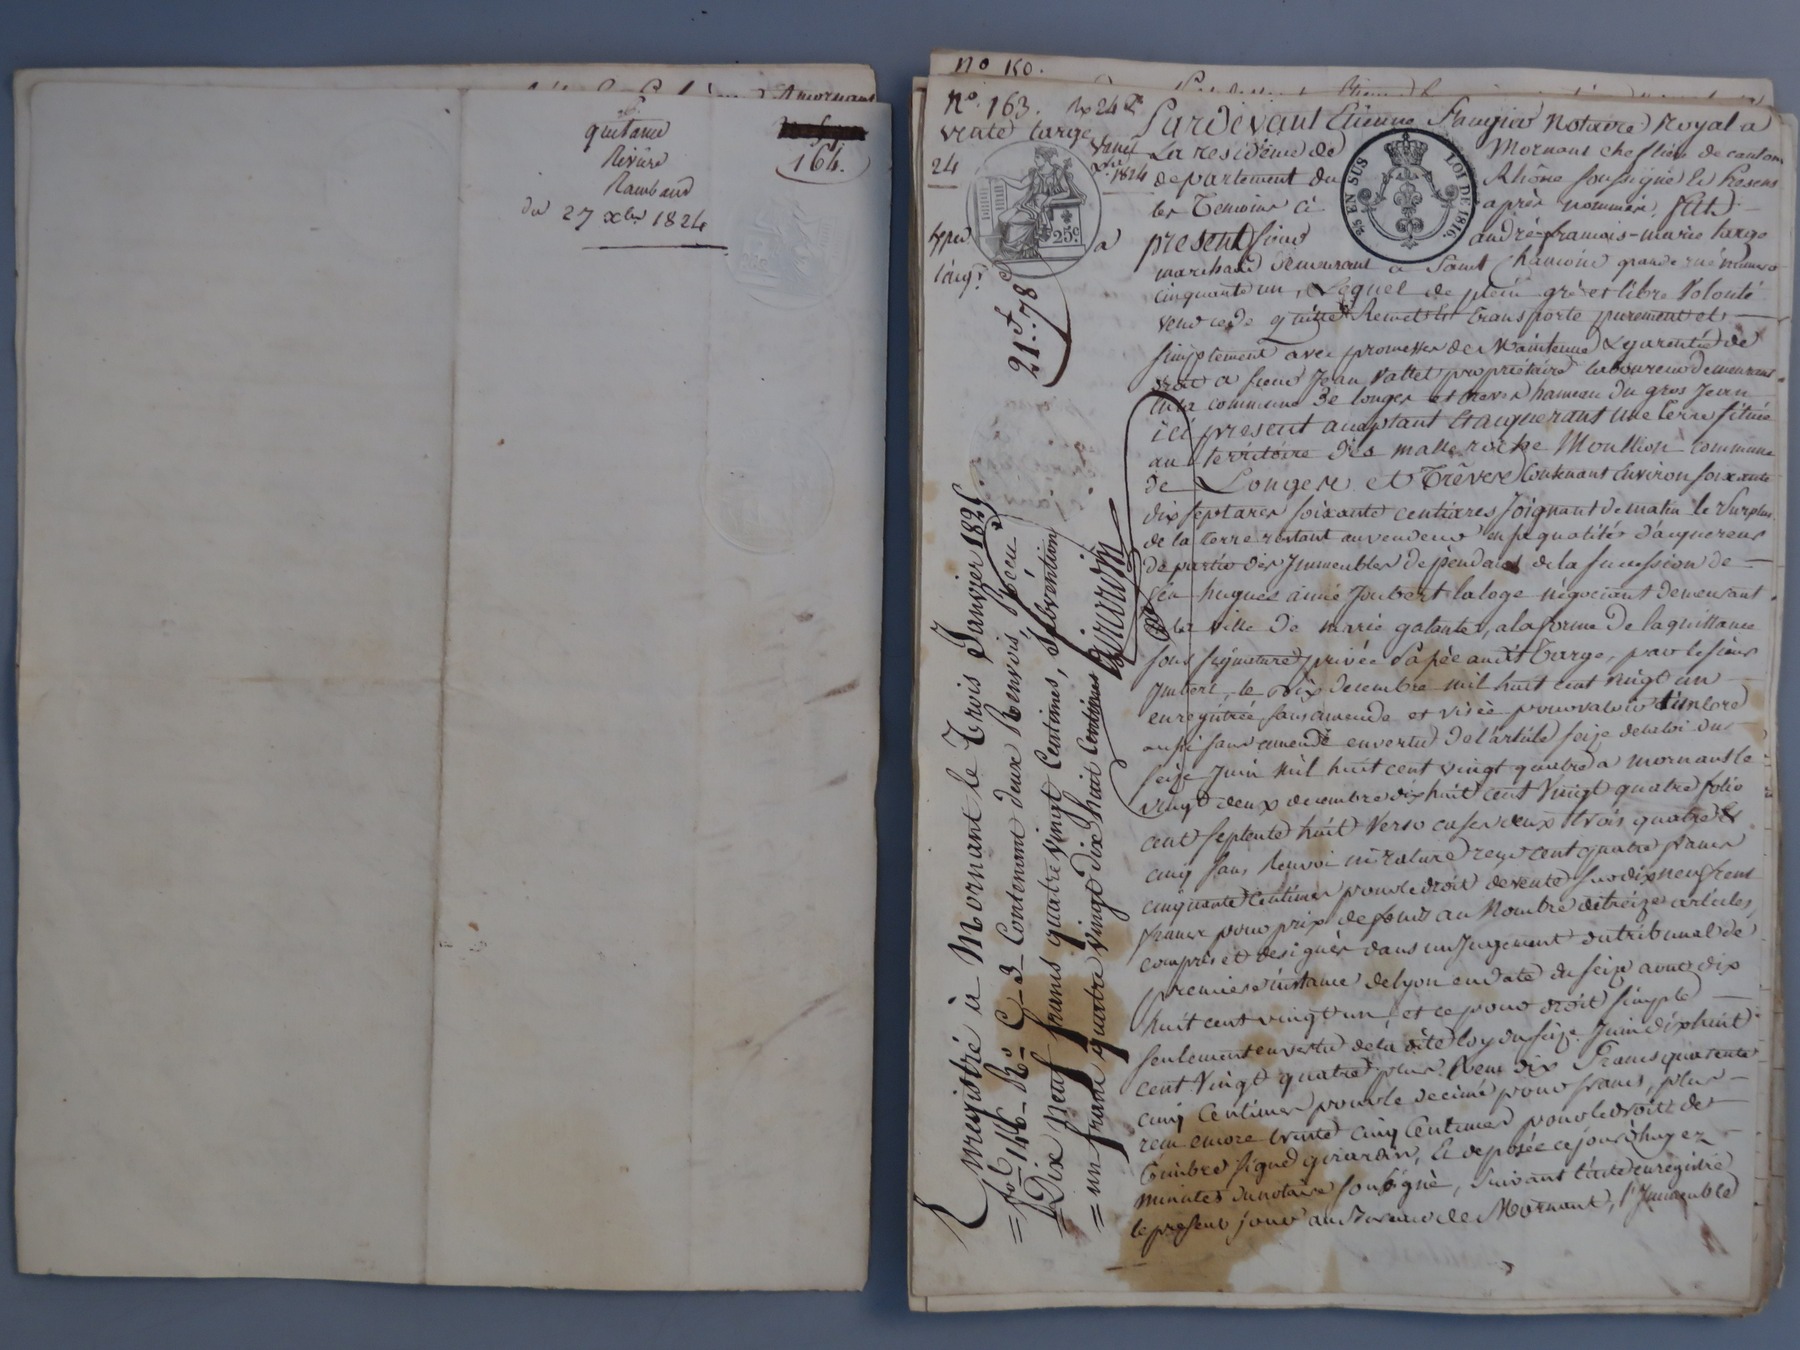 quitance
Rivière
Rambaud
du 27 xbre 1824
164.
no 150.
no. 163.
vente targe
24
24 Xbre 1824
25 EN SUS
LOI DE 1816.
25c
21f. 78
Pardevant Etienne Notaire Royal a
La residence de Mornant chef lieu de canton
departement du Rhône soussigné et presens
les temoins ci après nommés, fut
present sieur andré-francois-marie targe
marchand demeurant a Saint Chamond grande rue numero
cinquante un, Lequel de plein gré et libre volonté
vend cede quitte Remet et transporte purement et
simplement avec promesses de Maintenue & garentie de
droit a sieur Jean Vallet propriétaire laboureur demeurant
en la commune de longes et treves hameau du gros Jean
ici present acceptant et aquerant une terre située
au territoire de commune
de Longere et Trêvere Contenant Environ soixante
dix sept ares soixante centiares Joignant de matin le surplus
de la terre restant au vendeur en sa qualité d'aquereur
de partie des Jmmeubles dependant de la succession de
feu hugues aimé Joubert laloge négociant demeurant
a la ville de marie galante, a la forme de la quittance
sous signature privée passée audit targe, par le sieur
Jmbert, le dix decembre mil huit cent vingt un
enregistrée sans amende et visée pour valoir timbre
aussi sans amende en vertu de l'article seize de la loi du
seize Juin mil huit cent vingt quatre a mornant le
vingt deux decembre dix huit cent Vingt quatre folio
cent septente huit Verso cases deux trois quatre et
cinq sans Renvoi ni rature reçu cent quatre francs
cinquante centimes pour le droit de vente sur dix neuf cent
francs pour prix de fonds au Nombre de treize articles,
compris et designés dans un Jugement du tribunal de
premiere instance de lyon en date du seize aout dix
huit cent vingt un, et ce pour droit simple
seulement en vertu de la dite loy du seize Juin dix huit
cent Vingt quatre plus Reçu dix francs quarente
cinq Centimes pour le decime pour francs, plus
reçu encore trente cinq Centimes pour le droit de
timbre signé girardin, et deposée ce jourdhuy ez
minutes du notaire soussigné, suivant l'acte enregistré
le present jour au Bureau de Mornant, l'Jmmeuble
Enregistré à Mornant le Trois Janvier 1825.
fol 146 Ro C. 3 Contenant deux Renvois, reçu
Dix Neuf francs quatre vingt Centimes, subvention
un franc quatre vingt dix huit Centimes Girardin